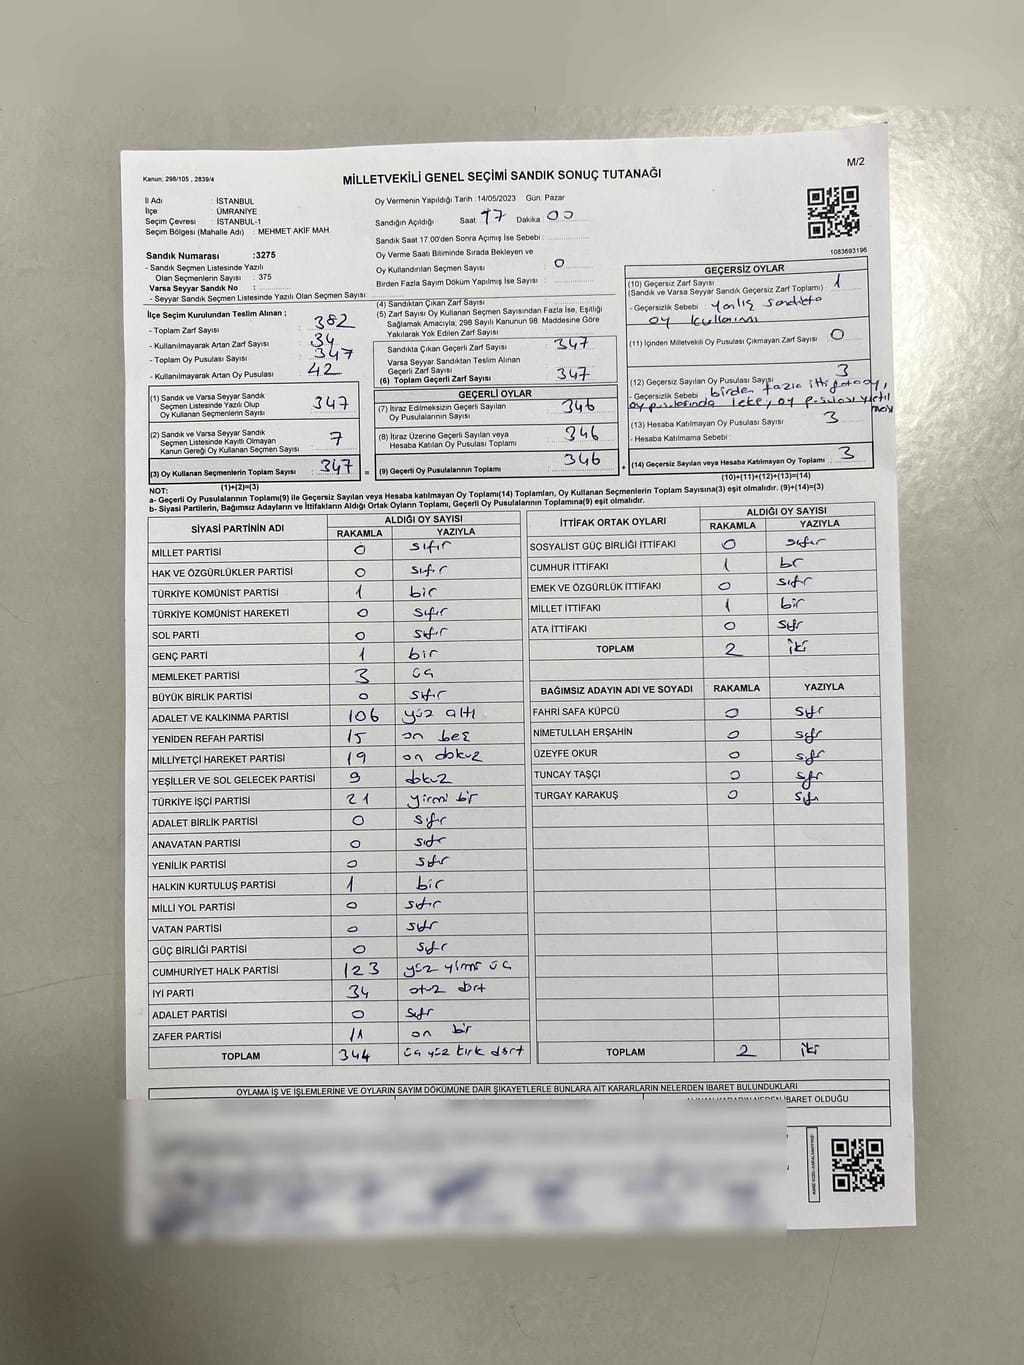 M/2
Kanun: 298/105 , 2839/4
MİLLETVEKİLİ GENEL SEÇİMİ SANDIK SONUÇ TUTANAĞI
İl Adı : İSTANBUL
İlçe : ÜMRANİYE
Seçim Çevresi : İSTANBUL-1
Seçim Bölgesi (Mahalle Adı) : MEHMET AKİF MAH.
Sandık Numarası :3275
- Sandık Seçmen Listesinde Yazılı
Olan Seçmenlerin Sayısı : 375
Varsa Seyyar Sandık No :
- Seyyar Sandık Seçmen Listesinde Yazılı Olan Seçmen Sayısı:
İlçe Seçim Kurulundan Teslim Alınan ;
- Toplam Zarf Sayısı : 382
- Kullanılmayarak Artan Zarf Sayısı : 34
- Toplam Oy Pusulası Sayısı : 347
- Kullanılmayarak Artan Oy Pusulası : 42
(1) Sandık ve Varsa Seyyar Sandık
Seçmen Listesinde Yazılı Olup
Oy Kullanan Seçmenlerin Sayısı : 347
(2) Sandık ve Varsa Seyyar Sandık
Seçmen Listesinde Kayıtlı Olmayan
Kanun Gereği Oy Kullanan Seçmen Sayısı : 7
(3) Oy Kullanan Seçmenlerin Toplam Sayısı : 347 =
(1)+(2)=(3)
Oy Vermenin Yapıldığı Tarih :14/05/2023 Gün: Pazar
Sandığın Açıldığı Saat: 17 Dakika: 00
Sandık Saat 17.00'den Sonra Açımış İse Sebebi :
Oy Verme Saati Bitiminde Sırada Bekleyen ve
Oy Kullandırılan Seçmen Sayısı : 0
Birden Fazla Sayım Döküm Yapılmış İse Sayısı :
(4) Sandıktan Çıkan Zarf Sayısı :
(5) Zarf Sayısı Oy Kullanan Seçmen Sayısından Fazla İse, Eşitliği
Sağlamak Amacıyla; 298 Sayılı Kanunun 98. Maddesine Göre
Yakılarak Yok Edilen Zarf Sayısı :
Sandıkta Çıkan Geçerli Zarf Sayısı : 347
Varsa Seyyar Sandıktan Teslim Alınan
Geçerli Zarf Sayısı :
(6) Toplam Geçerli Zarf Sayısı : 347
GEÇERLİ OYLAR
(7) İtiraz Edilmeksizin Geçerli Sayılan
Oy Pusulalarının Sayısı : 346
(8) İtiraz Üzerine Geçerli Sayılan veya
Hesaba Katılan Oy Pusulası Toplamı : 346
(9) Geçerli Oy Pusulalarının Toplamı : 346 +
1083693196
GEÇERSİZ OYLAR
(10) Geçersiz Zarf Sayısı : 1
(Sandık ve Varsa Seyyar Sandık Geçersiz Zarf Toplamı)
- Geçersizlik Sebebi : yanlış sandıkta
oy kullanımı
(11) İçinden Milletvekili Oy Pusulası Çıkmayan Zarf Sayısı : 0
(12) Geçersiz Sayılan Oy Pusulası Sayısı : 3
- Geçersizlik Sebebi : birden fazla ittifaka oy,
oy pusulasında leke, oy pusulası yırtıl
ması
(13) Hesaba Katılmayan Oy Pusulası Sayısı : 3
- Hesaba Katılmama Sebebi :
(14) Geçersiz Sayılan veya Hesaba Katılmayan Oy Toplamı : 3
(10)+(11)+(12)+(13)=(14)
NOT:
a- Geçerli Oy Pusulalarının Toplamı(9) ile Geçersiz Sayılan veya Hesaba katılmayan Oy Toplamı(14) Toplamları, Oy Kullanan Seçmenlerin Toplam Sayısına(3) eşit olmalıdır. (9)+(14)=(3)
b- Siyasi Partilerin, Bağımsız Adayların ve İttifakların Aldığı Ortak Oyların Toplamı, Geçerli Oy Pusulalarının Toplamına(9) eşit olmalıdır.
SİYASİ PARTİNİN ADI ALDIĞI OY SAYISI
RAKAMLA YAZIYLA
MİLLET PARTİSİ 0 sıfır
HAK VE ÖZGÜRLÜKLER PARTİSİ 0 sıfır
TÜRKİYE KOMÜNİST PARTİSİ 1 bir
TÜRKİYE KOMÜNİST HAREKETİ 0 sıfır
SOL PARTİ 0 sıfır
GENÇ PARTİ 1 bir
MEMLEKET PARTİSİ 3 üç
BÜYÜK BİRLİK PARTİSİ 0 sıfır
ADALET VE KALKINMA PARTİSİ 106 yüz altı
YENİDEN REFAH PARTİSİ 15 on beş
MİLLİYETÇİ HAREKET PARTİSİ 19 on dokuz
YEŞİLLER VE SOL GELECEK PARTİSİ 9 dokuz
TÜRKİYE İŞÇİ PARTİSİ 21 yirmi bir
ADALET BİRLİK PARTİSİ 0 sıfır
ANAVATAN PARTİSİ 0 sıfır
YENİLİK PARTİSİ 0 sıfır
HALKIN KURTULUŞ PARTİSİ 1 bir
MİLLİ YOL PARTİSİ 0 sıfır
VATAN PARTİSİ 0 sıfır
GÜÇ BİRLİĞİ PARTİSİ 0 sıfır
CUMHURİYET HALK PARTİSİ 123 yüz yirmi üç
İYİ PARTİ 34 otuz dört
ADALET PARTİSİ 0 sıfır
ZAFER PARTİSİ 11 on bir
TOPLAM 344 üç yüz kırk dört
İTTİFAK ORTAK OYLARI ALDIĞI OY SAYISI
RAKAMLA YAZIYLA
SOSYALİST GÜÇ BİRLİĞİ İTTİFAKI 0 sıfır
CUMHUR İTTİFAKI 1 bir
EMEK VE ÖZGÜRLÜK İTTİFAKI 0 sıfır
MİLLET İTTİFAKI 1 bir
ATA İTTİFAKI 0 sıfır
TOPLAM 2 iki
BAĞIMSIZ ADAYIN ADI VE SOYADI RAKAMLA YAZIYLA
FAHRİ SAFA KÜPCÜ 0 sıfır
NİMETULLAH ERŞAHİN 0 sıfır
ÜZEYFE OKUR 0 sıfır
TUNCAY TAŞÇI 0 sıfır
TURGAY KARAKUŞ 0 sıfır
TOPLAM 2 iki
OYLAMA İŞ VE İŞLEMLERİNE VE OYLARIN SAYIM DÖKÜMÜNE DAİR ŞİKAYETLERLE BUNLARA AİT KARARLARIN NELERDEN İBARET BULUNDUKLARI
İBARET OLDUĞU